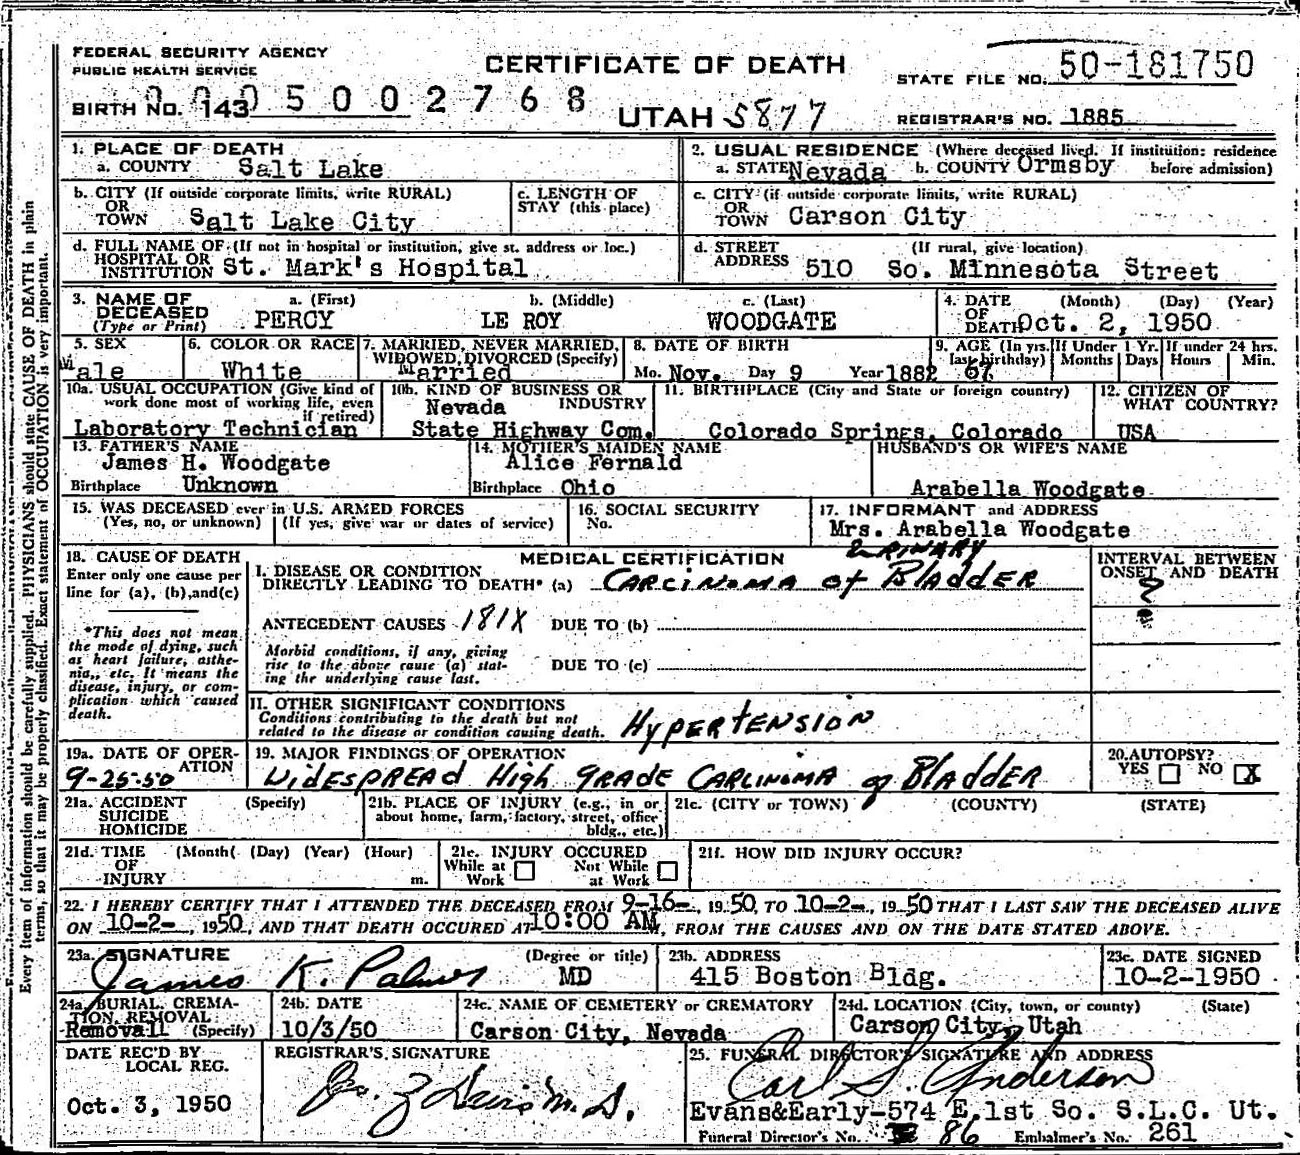 FEDERAL SECURITY AGENCY
PUBLIC HEALTH SERVICE
CERTIFICATE OF DEATH
STATE FILE NO. 50-181750
BIRTH NO. 143 5002768
UTAH 5877
REGISTRAR'S NO. 1885
Every item of information should be carefully supplied. PHYSICIANS should state CAUSE OF DEATH in plain
terms, so that it may be properly classified. Exact statement of OCCUPATION is very important.
1. PLACE OF DEATH
a. COUNTY Salt Lake
2. USUAL RESIDENCE (Where deceased lived. If institution: residence
a. STATE Nevada b. COUNTY Ormsby before admission)
b. CITY (If outside corporate limits, write RURAL)
OR
TOWN Salt Lake City
c. LENGTH OF
STAY (this place)
c. CITY (if outside corporate limits, write RURAL)
OR
TOWN Carson City
d. FULL NAME OF (If not in hospital or institution, give st. address or loc.)
HOSPITAL OR
INSTITUTION St. Mark's Hospital
d. STREET (If rural, give location)
ADDRESS 510 So. Minnesota Street
3. NAME OF a. (First) b. (Middle) c. (Last)
DECEASED
(Type or Print) PERCY LE ROY WOODGATE
4. DATE (Month) (Day) (Year)
OF
DEATH Oct. 2, 1950
5. SEX
Male
6. COLOR OR RACE
White
7. MARRIED, NEVER MARRIED,
WIDOWED, DIVORCED (Specify)
Married
8. DATE OF BIRTH
Mo. Nov. Day 9 Year 1882
9. AGE (In yrs. If Under 1 Yr. If under 24 hrs.
last birthday) Months Days Hours Min.
67
10a. USUAL OCCUPATION (Give kind of
work done most of working life, even
if retired)
Laboratory Technician
10b. KIND OF BUSINESS OR
INDUSTRY
Nevada
State Highway Com.
11. BIRTHPLACE (City and State or foreign country)
Colorado Springs, Colorado
12. CITIZEN OF
WHAT COUNTRY?
USA
13. FATHER'S NAME
James H. Woodgate
Birthplace Unknown
14. MOTHER'S MAIDEN NAME
Alice Fernald
Birthplace Ohio
HUSBAND'S OR WIFE'S NAME
Arabella Woodgate
15. WAS DECEASED ever in U.S. ARMED FORCES
(Yes, no, or unknown) (If yes, give war or dates of service)
16. SOCIAL SECURITY
No.
17. INFORMANT and ADDRESS
Mrs. Arabella Woodgate
18. CAUSE OF DEATH
Enter only one cause per
line for (a), (b), and (c)
*This does not mean
the mode of dying, such
as heart failure, asthe-
nia, etc. It means the
disease, injury, or com-
plication which caused
death.
MEDICAL CERTIFICATION
I. DISEASE OR CONDITION
DIRECTLY LEADING TO DEATH* (a) CARCINOMA of URINARY BLADDER
ANTECEDENT CAUSES 181X DUE TO (b)
Morbid conditions, if any, giving
rise to the above cause (a) stat-
ing the underlying cause last.
DUE TO (c)
INTERVAL BETWEEN
ONSET AND DEATH
?
II. OTHER SIGNIFICANT CONDITIONS
Conditions contributing to the death but not
related to the disease or condition causing death.
HYPERTENSION
19a. DATE OF OPER-
ATION
9-25-50
19. MAJOR FINDINGS OF OPERATION
WIDESPREAD HIGH GRADE CARCINOMA of BLADDER
20. AUTOPSY?
YES NO X
21a. ACCIDENT (Specify)
SUICIDE
HOMICIDE
21b. PLACE OF INJURY (e.g., in or
about home, farm, factory, street, office
bldg., etc.)
21c. (CITY or TOWN) (COUNTY) (STATE)
21d. TIME (Month) (Day) (Year) (Hour)
OF
INJURY m.
21e. INJURY OCCURED
While at Not While
Work at Work
21f. HOW DID INJURY OCCUR?
22. I HEREBY CERTIFY THAT I ATTENDED THE DECEASED FROM 9-16-, 1950, TO 10-2-, 1950 THAT I LAST SAW THE DECEASED ALIVE
ON 10-2-, 1950, AND THAT DEATH OCCURED AT 10:00 AM, FROM THE CAUSES AND ON THE DATE STATED ABOVE.
23a. SIGNATURE (Degree or title)
James K. Palmer MD
23b. ADDRESS
415 Boston Bldg.
23c. DATE SIGNED
10-2-1950
24a. BURIAL, CREMA-
TION, REMOVAL
Removall (Specify)
24b. DATE
10/3/50
24c. NAME OF CEMETERY or CREMATORY
Carson City, Nevada
24d. LOCATION (City, town, or county) (State)
Carson City, Utah
DATE REC'D BY
LOCAL REG.
Oct. 3, 1950
REGISTRAR'S SIGNATURE
25. FUNERAL DIRECTOR'S SIGNATURE AND ADDRESS
Carl S. Anderson
Evans&Early-574 E.1st So. S.L.C. Ut.
Funeral Director's No. 86 Embalmer's No. 261